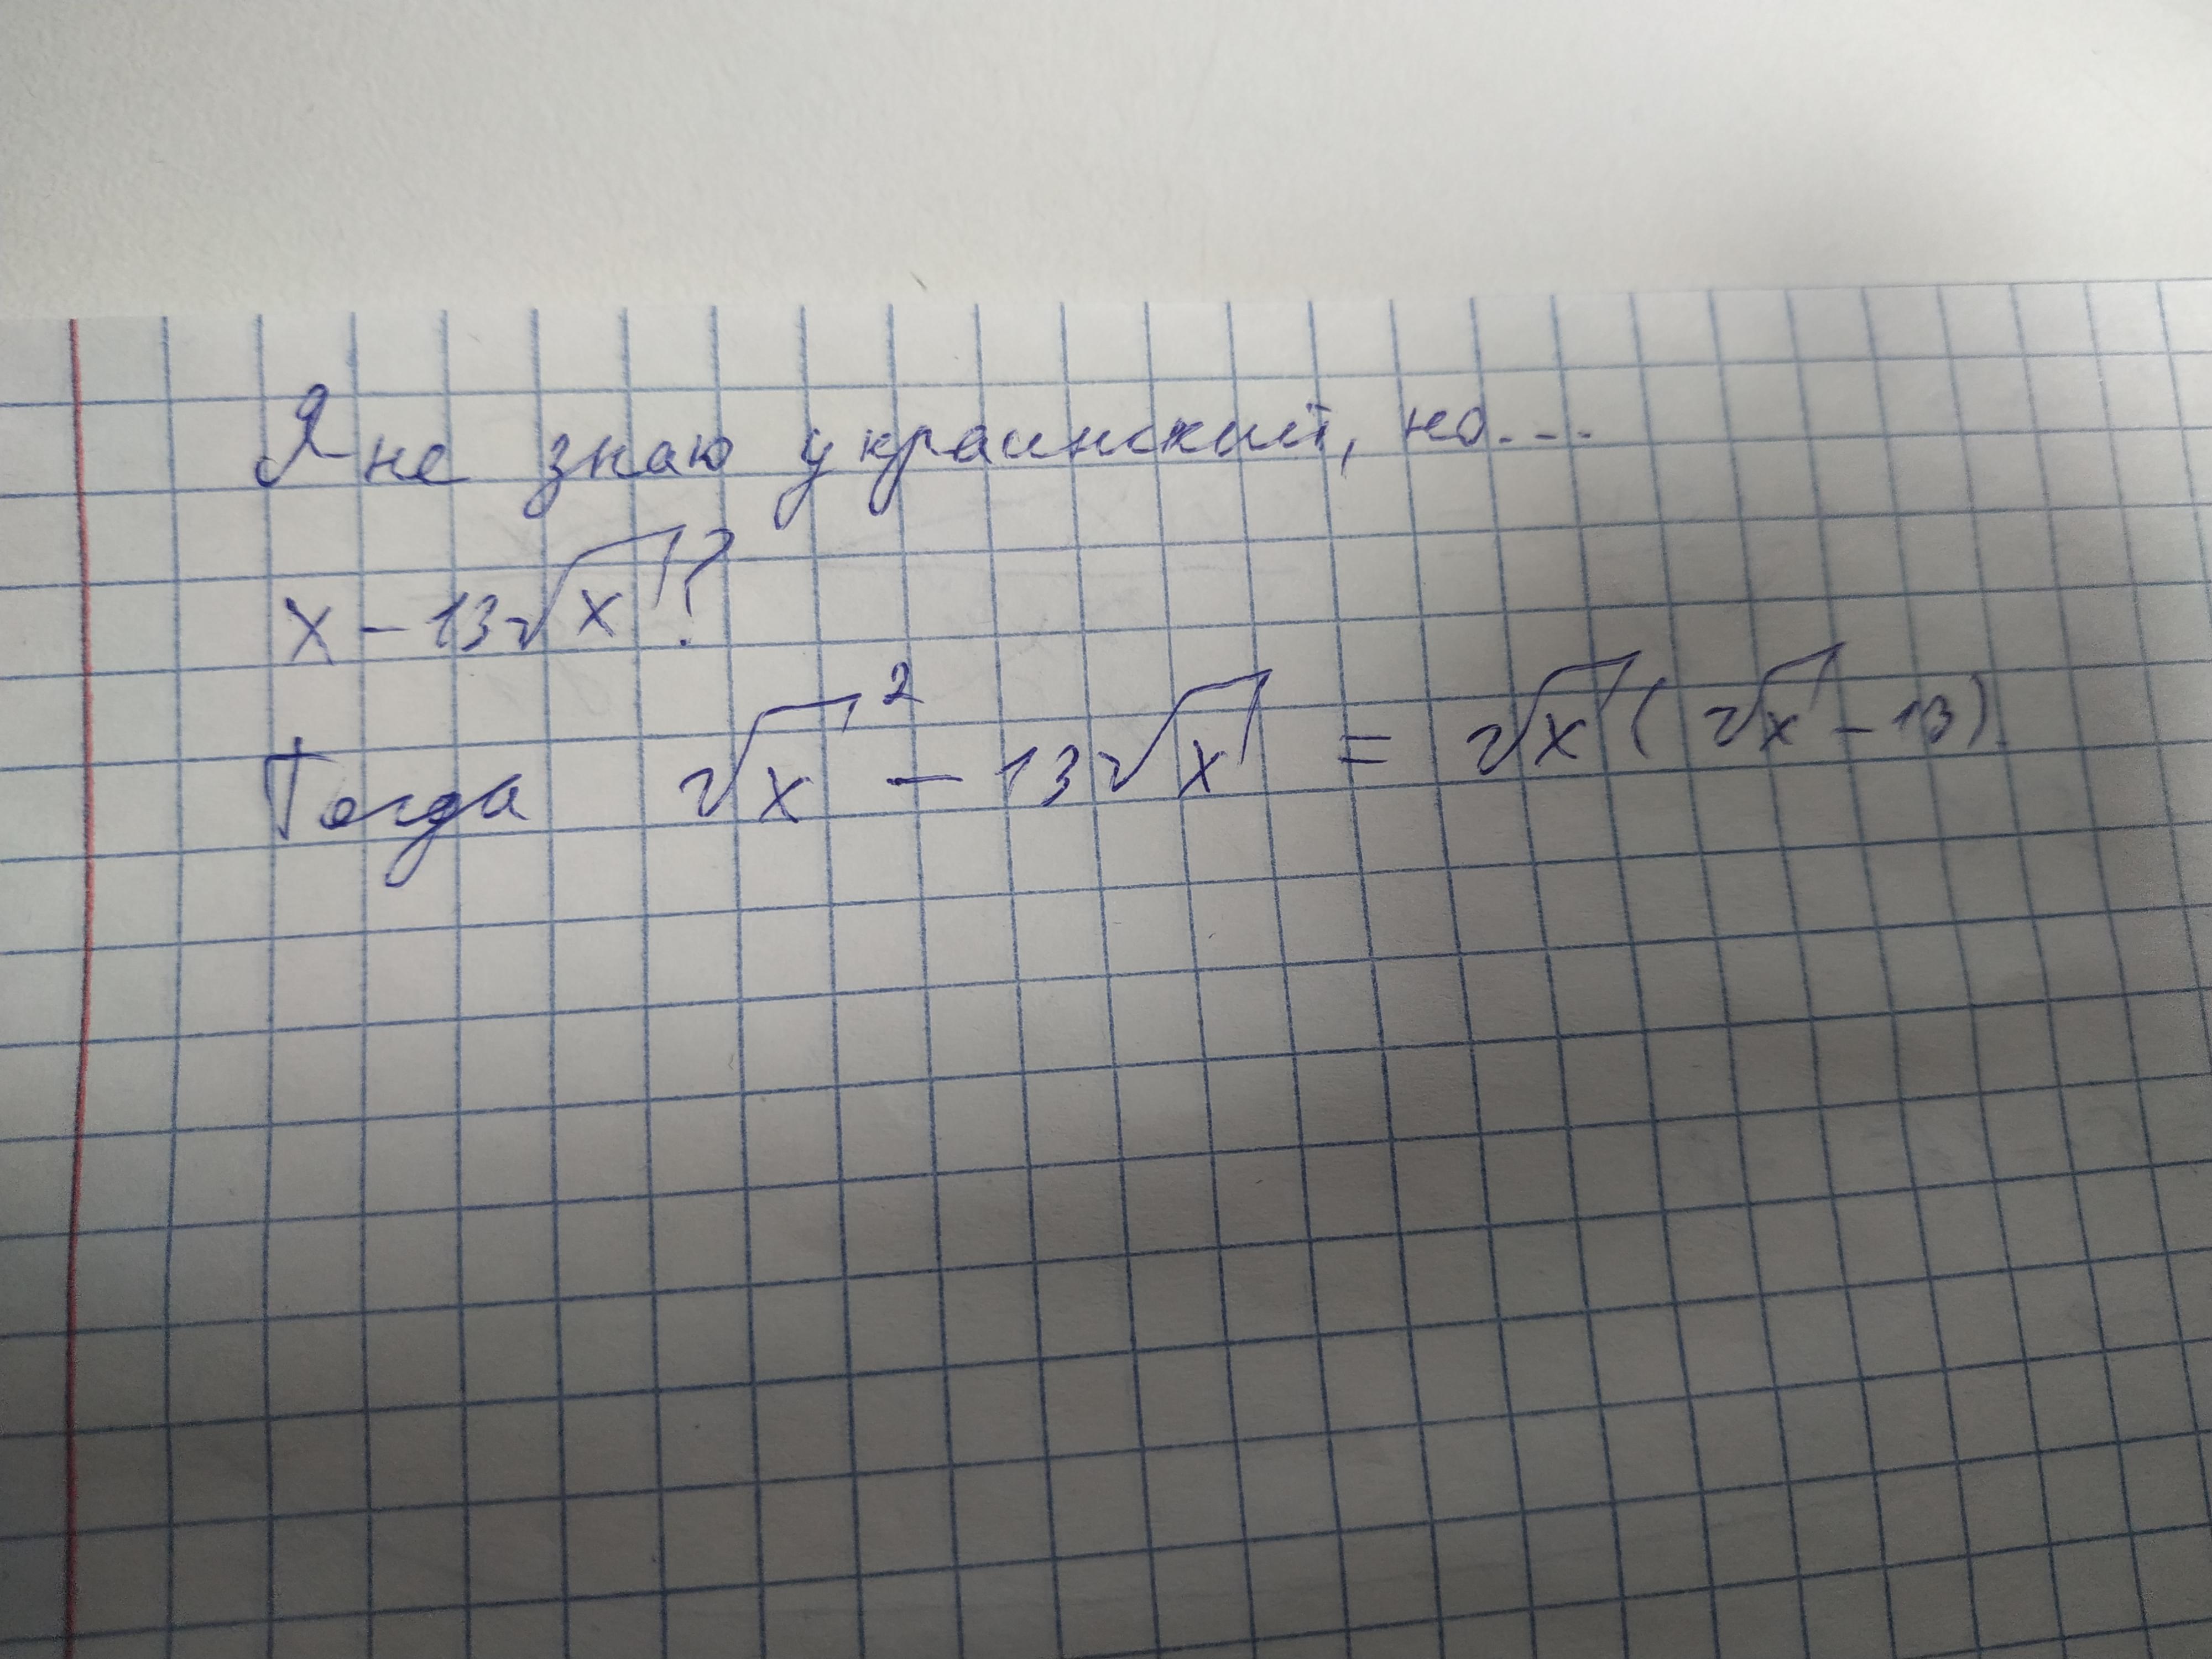 Я не знаю украинский, но...
x - 13√x ?
Тогда √x² - 13√x = √x (√x - 13)